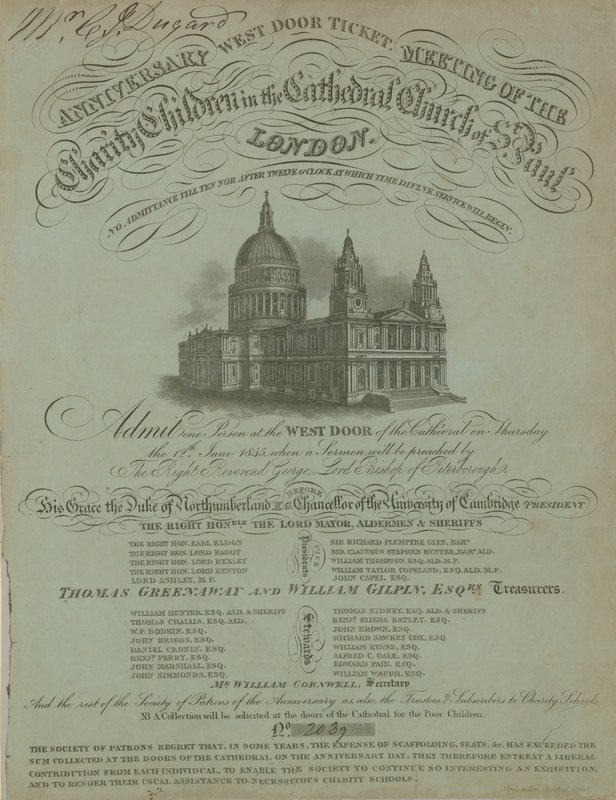 Mr. C. J. Dugard
WEST DOOR TICKET.
ANNIVERSARY MEETING OF THE
Charity Children in the Cathedral Church of St. Paul
LONDON.
NO ADMITTANCE TILL TEN NOR AFTER TWELVE O'CLOCK AT WHICH TIME DIVINE SERVICE WILL BEGIN.
Admit one Person at the WEST DOOR of the Cathedral on Thursday
the 12th June 1845, when a Sermon will be preached by
The Right Reverend George, Lord Bishop of Peterborough,
BEFORE
His Grace the Duke of Northumberland K.G. Chancellor of the University of Cambridge PRESIDENT
THE RIGHT HONBLE THE LORD MAYOR, ALDERMEN & SHERIFFS
THE RIGHT HON. EARL ELDON
THE RIGHT HON. LORD BAGOT
THE RIGHT HON. LORD BEXLEY
THE RIGHT HON. LORD KENYON
LORD ASHLEY, M.P.
VICE
Presidents
SIR RICHARD PLUMPTRE GLYN, BART
SIR CLAUDIUS STEPHEN HUNTER, BART ALD.
WILLIAM THOMPSON, ESQ. ALD. M.P.
WILLIAM TAYLOR COPELAND, ESQ. ALD. M.P.
JOHN CAPEL ESQ.
THOMAS GREENAWAY AND WILLIAM GILPIN, ESQRS Treasurers.
WILLIAM HUNTER, ESQ. ALD. & SHERIFF
THOMAS CHALLIS, ESQ. ALD.
W.P. BODKIN, ESQ.
JOHN BRIGGS, ESQ.
DANIEL CRONIN, ESQ.
BENJN. FERRY, ESQ.
JOHN MARSHALL, ESQ.
JOHN SIMMONDS, ESQ.
Stewards
THOMAS SIDNEY, ESQ. ALD. & SHERIFF
BENJN. ELISHA BATLEY, ESQ.
JOHN BROWN, ESQ.
RICHARD SAWREY COX, ESQ.
WILLIAM EVANS, ESQ.
ALFRED C. GALE, ESQ.
EDWARD PAIN, ESQ.
WILLIAM WAUGH, ESQ.
MR. WILLIAM CORNWELL, Secretary
And the rest of the Society of Patrons of the Anniversary as also the Trustees & Subscribers to Charity Schools
NB A Collection will be solicited at the doors of the Cathedral for the Poor Children.
No. 2039
THE SOCIETY OF PATRONS REGRET THAT, IN SOME YEARS, THE EXPENSE OF SCAFFOLDING, SEATS, &c. HAS EXCEEDED THE
SUM COLLECTED AT THE DOORS OF THE CATHEDRAL ON THE ANNIVERSARY DAY, THEY THEREFORE ENTREAT A LIBERAL
CONTRIBUTION FROM EACH INDIVIDUAL, TO ENABLE THE SOCIETY TO CONTINUE SO INTERESTING AN EXHIBITION,
AND TO RENDER THEIR USUAL ASSISTANCE TO NECESSITOUS CHARITY SCHOOLS.